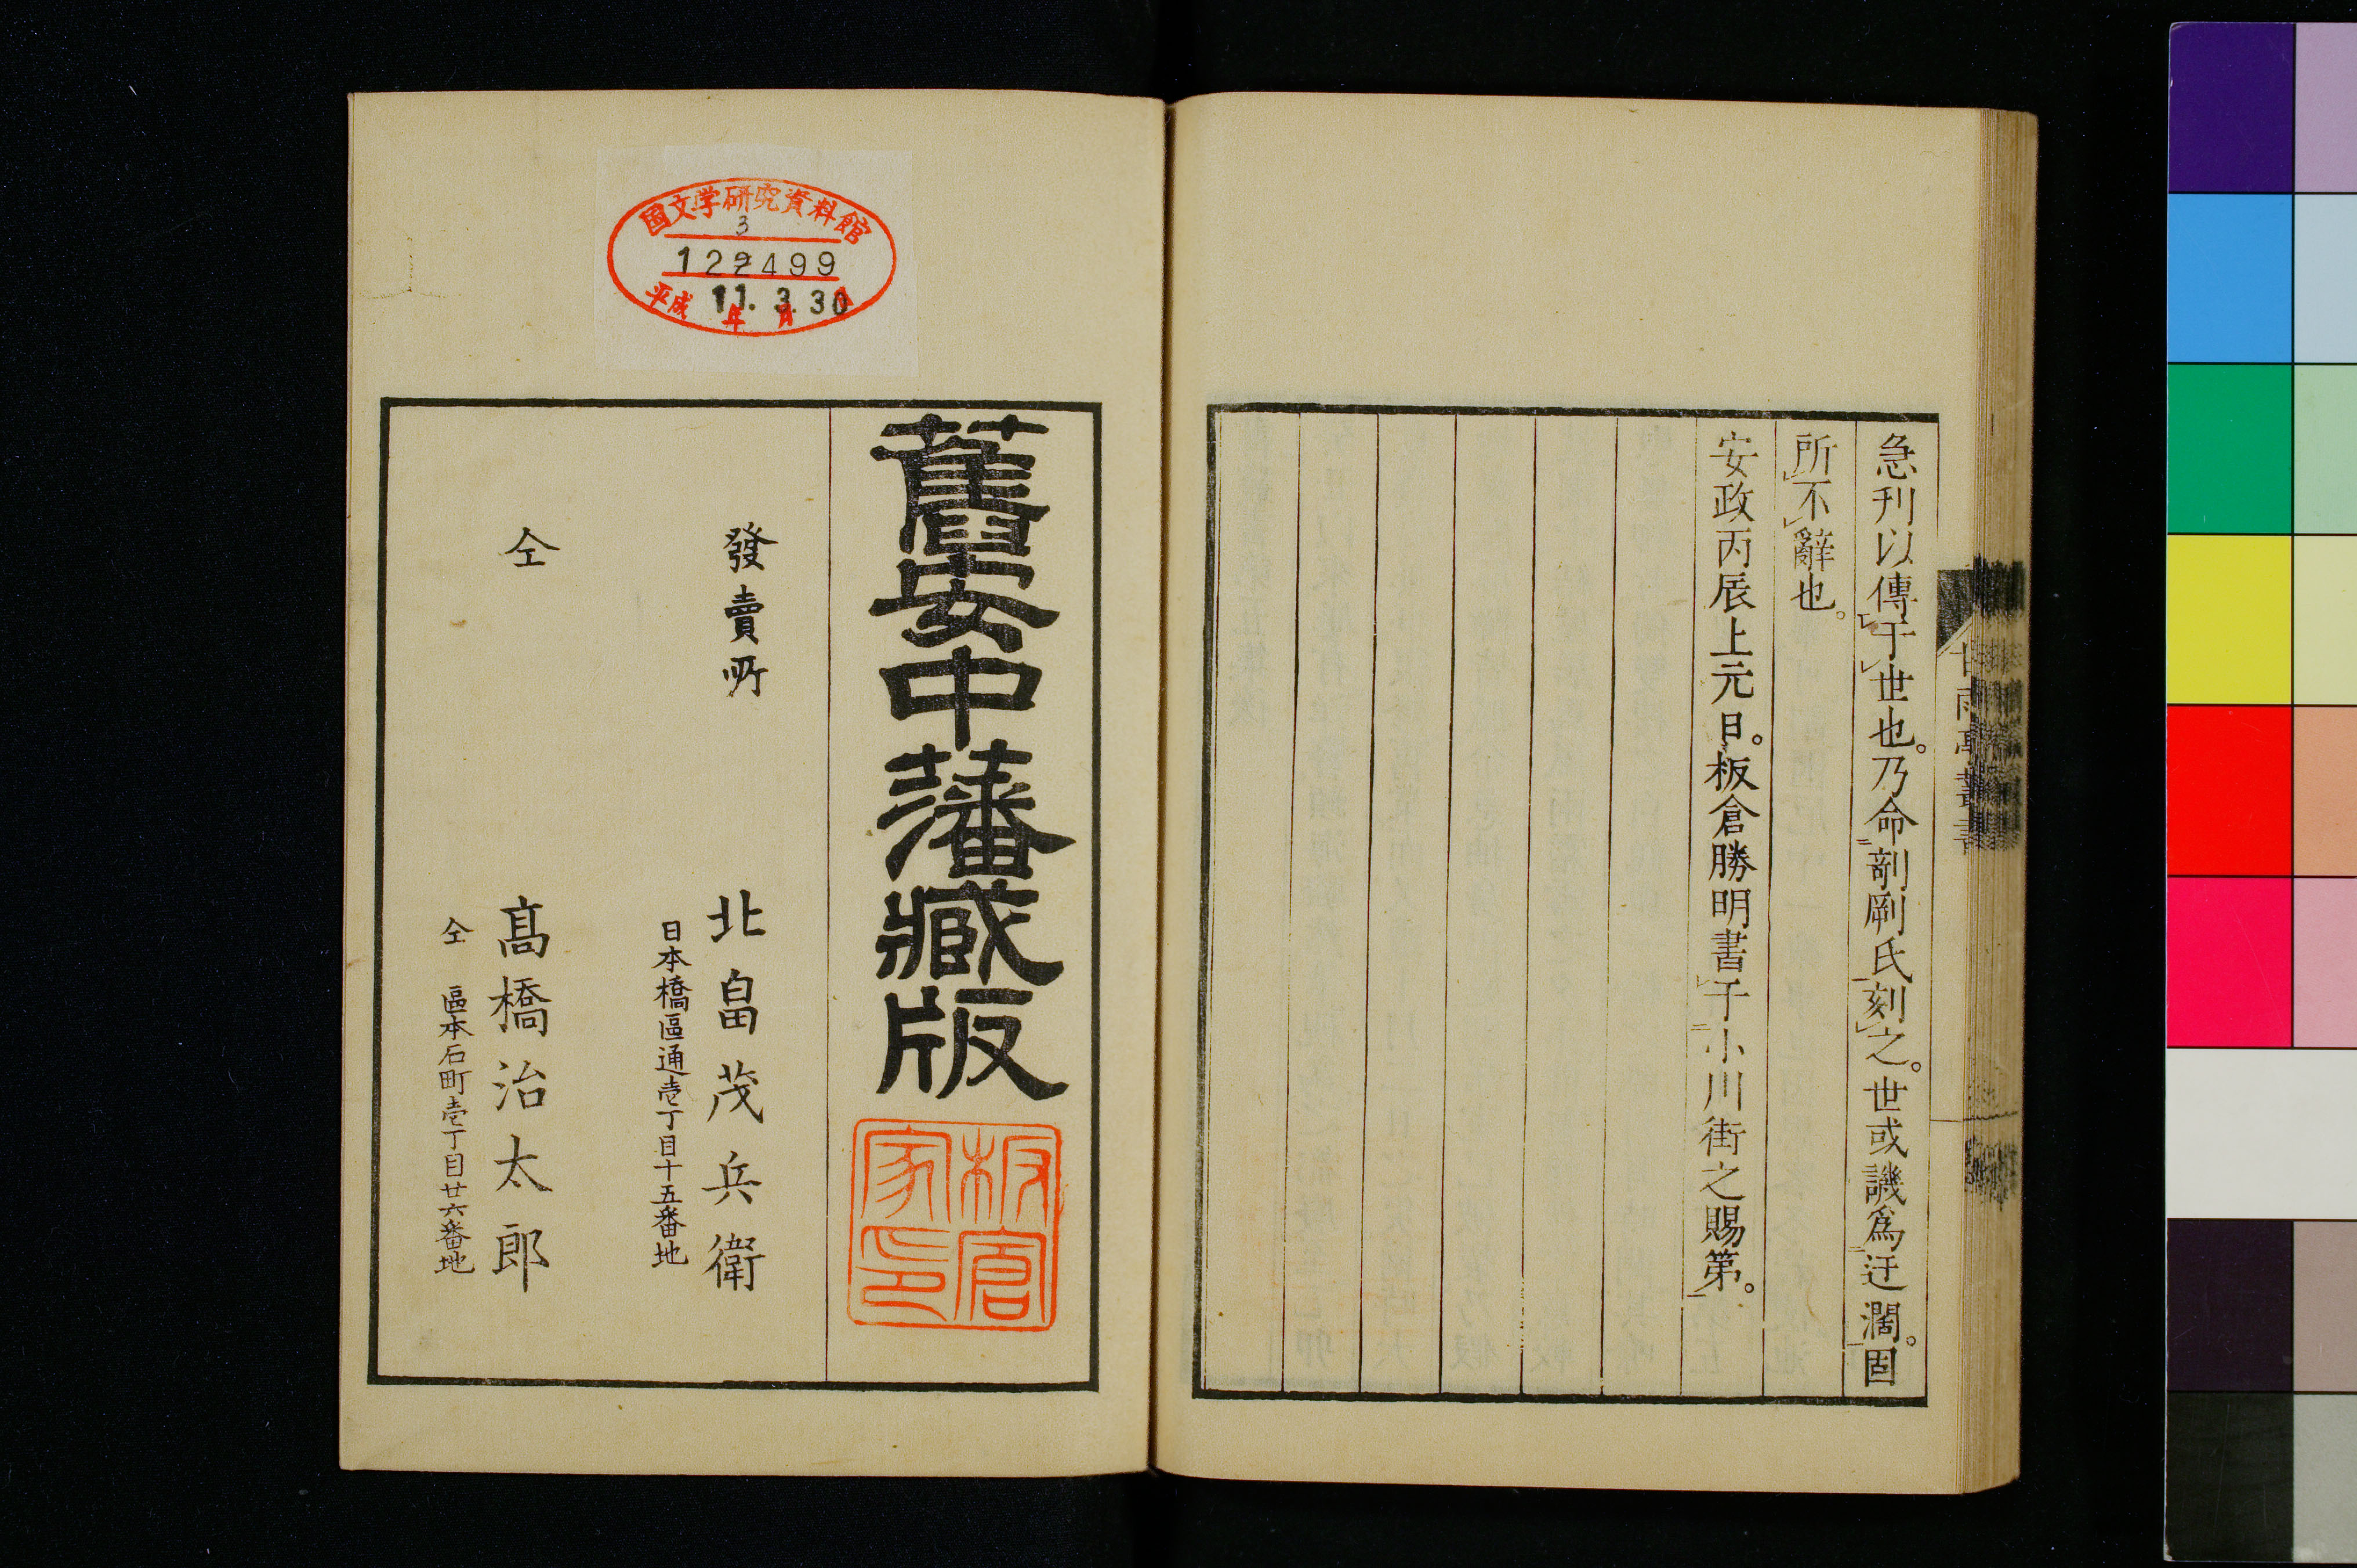 急刊以傳于世也。乃命剞劂氏刻之。世或譏爲迂濶。固
所不辭也。
安政丙辰上元日。板倉勝明書于小川街之賜第。
甘雨亭叢書
舊安中藩藏版
板倉
家印
發賣所
北畠茂兵衛
日本橋區通壱丁目十五番地
仝
髙橋治太郎
仝 區本石町壱丁目廿六番地
国文学研究資料館
3
122499
平成 11年3月30日